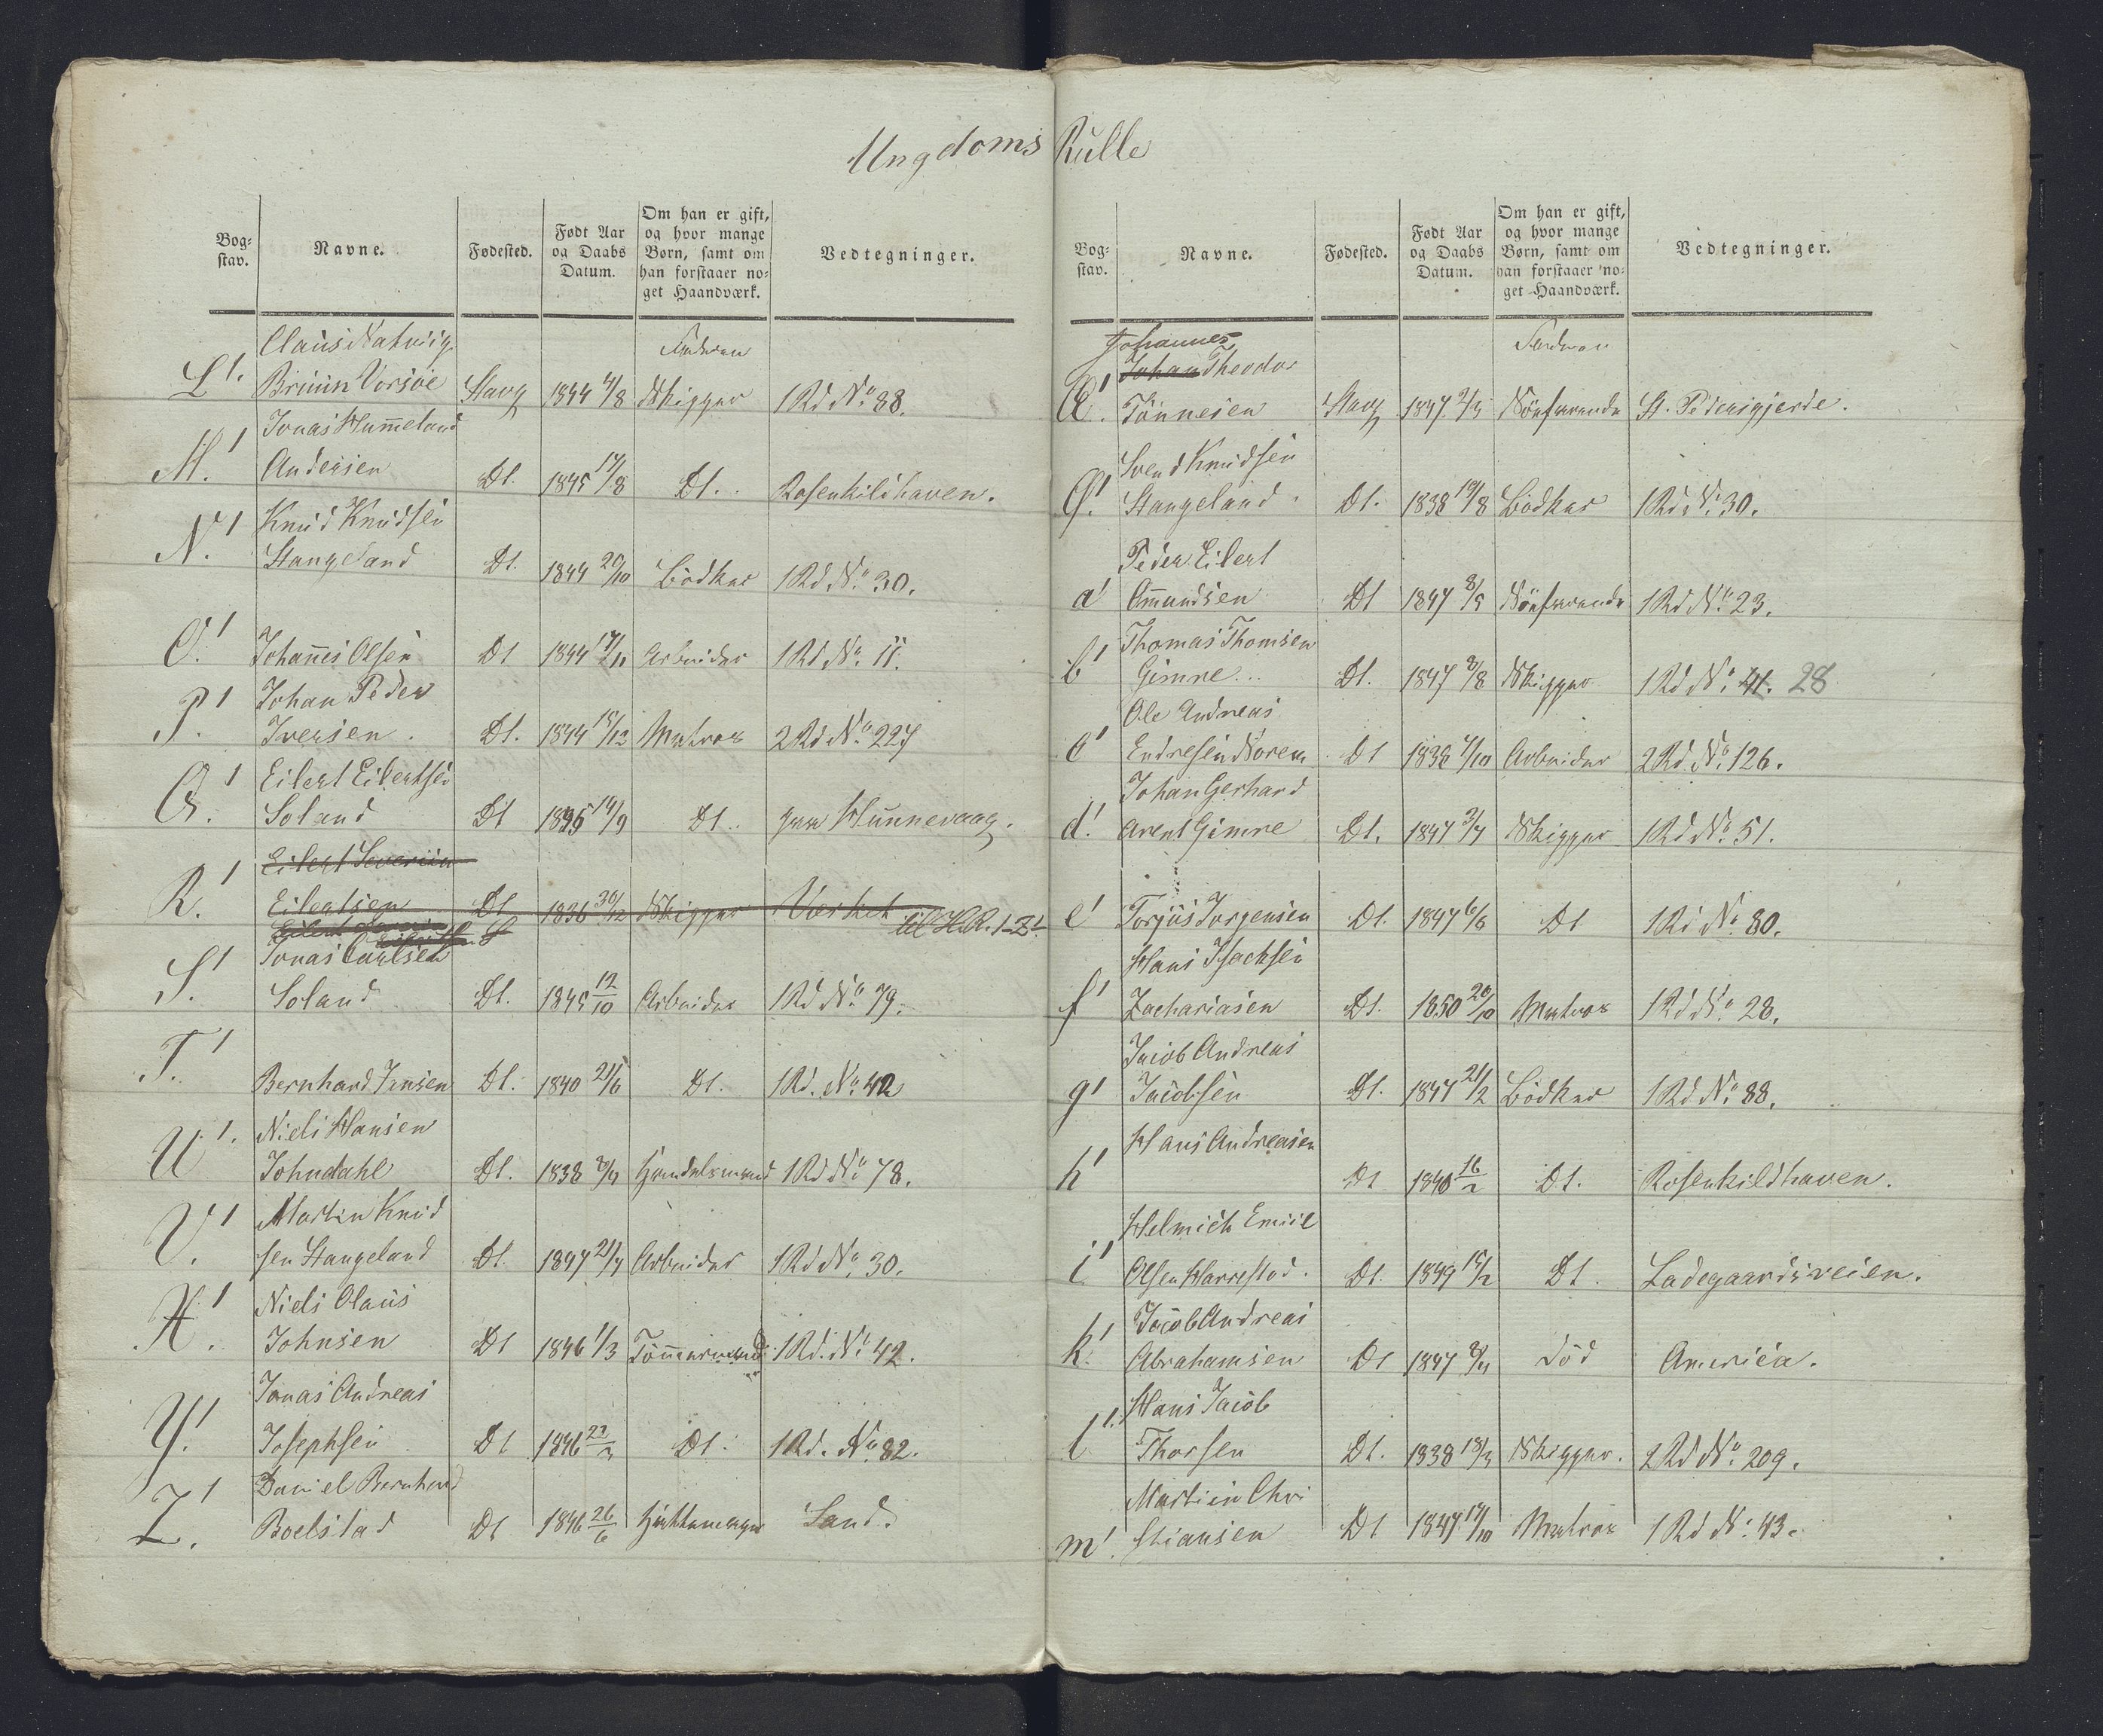 Ungdoms Rulle
Bog-
stav.
Navne.
Fødested.
Født Aar
og Daabs
Datum.
Om han er gift,
og hvor mange
Børn, samt om
han forstaaer no-
get Haandværk.
Vedtegninger.
Claus Natvig
Faderen
L'. Bruun Vorsøe Stavg 1844 4/8 Skipper 1 Rd No. 88.
Jonas Hummeland
M.' Andersen Dt. 1845 17/8 Dt. Rosenkildhaven.
Knud Knudsen
N.' Stangeland Dt. 1844 20/10 Bödker 1 Rd. No. 30.
O.' Johannes Olsen Dt 1844 17/11 Arbeider 1 Rd No. 11.
Johan Peder
P.' Iversen. Dt. 1844 15/12 Matros 2 Rd No. 227
Eilert Eilertsen
Q.' Soland Dt 1845 14/9 Dt. Hunnevaag.
Eilert Severin
R.' Eilertsen Dt 1836 30/12 Skipper Værket
til H.R. 1-Z1.
Jonas Carlsen
S.' Soland Dt. 1845 12/10 Arbeider 1 Rd No. 79.
T.' Bernhard Jensen Dt. 1840 21/6 Dt. 1 Rd. No. 42
Niels Hansen
U'. Johndahl Dt. 1838 Handelsmand 1 Rd No. 78.
Martin Knud
V.' sen Stangeland Dt. 1847 21/7 Arbeider 1 Rd No. 30.
Niels Olaus
X.' Johnsen Dt 1846 1/3 Tömmermand 1 Rd. No. 42.
Jonas Andreas
Y.' Josephsen Dt 1846 Dt. 1 Rd. No. 82.
Daniel Bernhard
Z.' Boelstad Dt 1846 26/6 Sand.
Bog-
stav.
Navne.
Fødested.
Født Aar
og Daabs
Datum.
Om han er gift,
og hvor mange
Børn, samt om
han forstaaer no-
get Haandværk.
Vedtegninger.
Johannes
Faderen
Johan Theodor
Tönnesen Stavg 1847 Söefarende St. Pedersgjerde.
Svend Knudsen
Stangeland Dt. 1838 19/8 Bödker 1 Rd. No. 30.
Peder Eilert
a' Amundsen Dt 1847 8/5 Söefarende 1 Rd No. 23.
Thomas Thomsen
b' Gimre Dt. 1847 8/8 Skipper 1 Rd No. 41. 28
Ole Andreas
c' Endresen Norem Dt 1838 4/10 Arbeider 2 Rd No. 126.
Johan Gerhard
d.' Arent Gimre Dt. 1847 Skipper 1 Rd No. 51.
e' Torjus Jorgensen Dt. 1847 6/6 Dt 1 Rd No. 80.
Hans Isachsen
f' Zachariasen Dt. 1850 20/10 Matros 1 Rd No. 28.
Jacob Andreas
g' Jacobsen Dt. 1847 21/2 Bödker 1 Rd No. 88.
Hans Andreasen
h' Dt 1840 16/2 Dt. Rosenkildhaven.
Helmich Emiil
i' Olsen Harrestad. Dt. 1849 15/2 Dt. Ladegaardsveien.
Jacob Andreas
k.' Abrahamsen Dt 1847 död America.
Hans Jacob
l'. Thorsen Dt. 1838 18/3 Skipper. 2 Rd No. 209.
Martiin Chri
m'. stiansen Dt 1847 14/10 Matros 1 Rd No. 43.